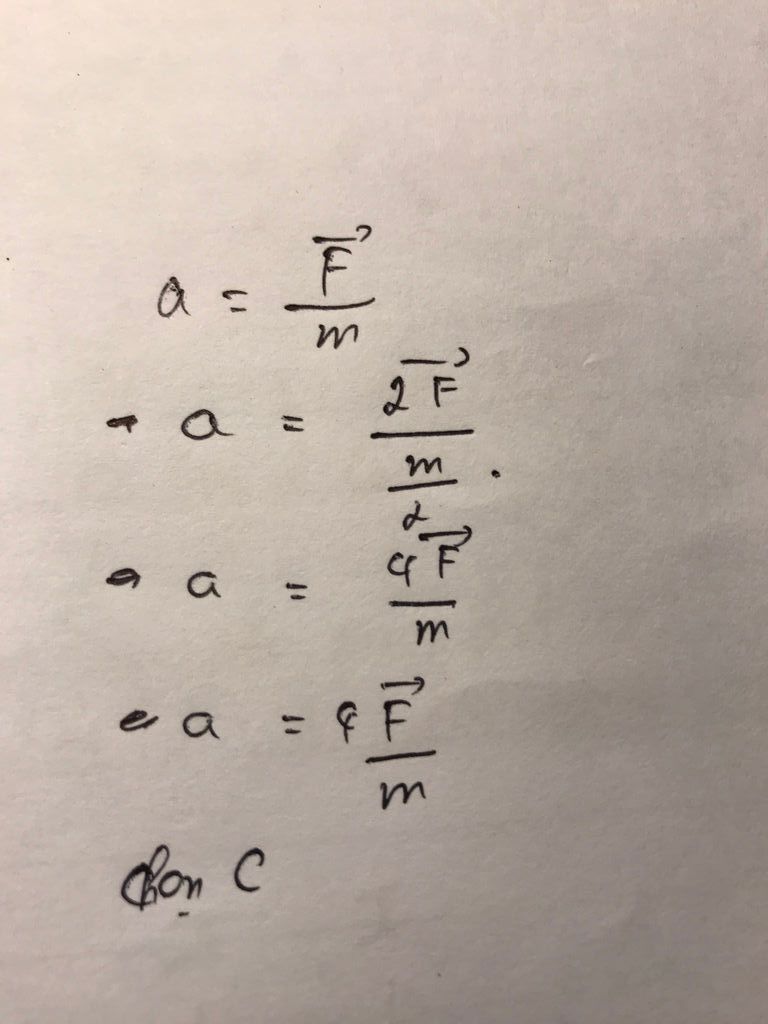 a = \frac{\vec{F}}{m}
- a = \frac{2\vec{F}}{\frac{m}{2}} .
- a = \frac{4\vec{F}}{m}
- a = 4\frac{\vec{F}}{m}
Chọn C